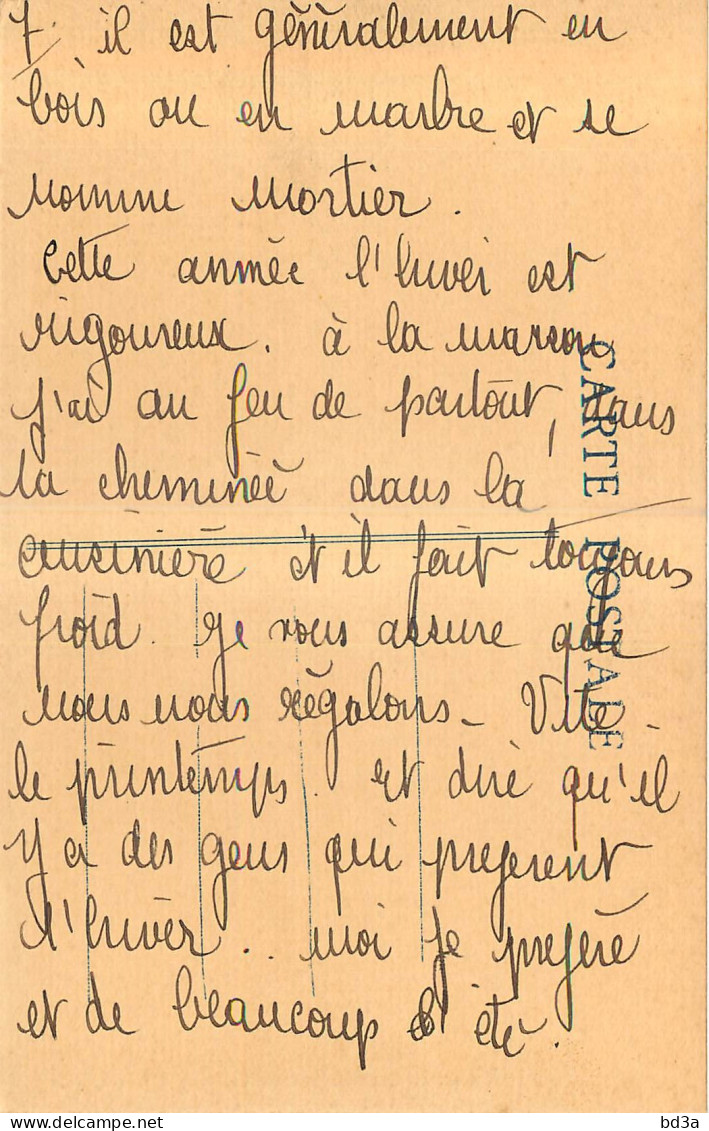 7. il est généralement en
bois ou en marbre et se
nomme mortier.
Cette année l'hiver est
rigoureux. à la maison
j'ai du feu de partout, dans
la cheminée dans la
cuisinière et il fait toujours
froid. Je vous assure que
nous nous régalons - Vite
le printemps. Et dire qu'il
y a des gens qui préfèrent
l'hiver.. moi je préfère
et de beaucoup l'été.
CARTE POSTALE
delcampe.net
bd3a